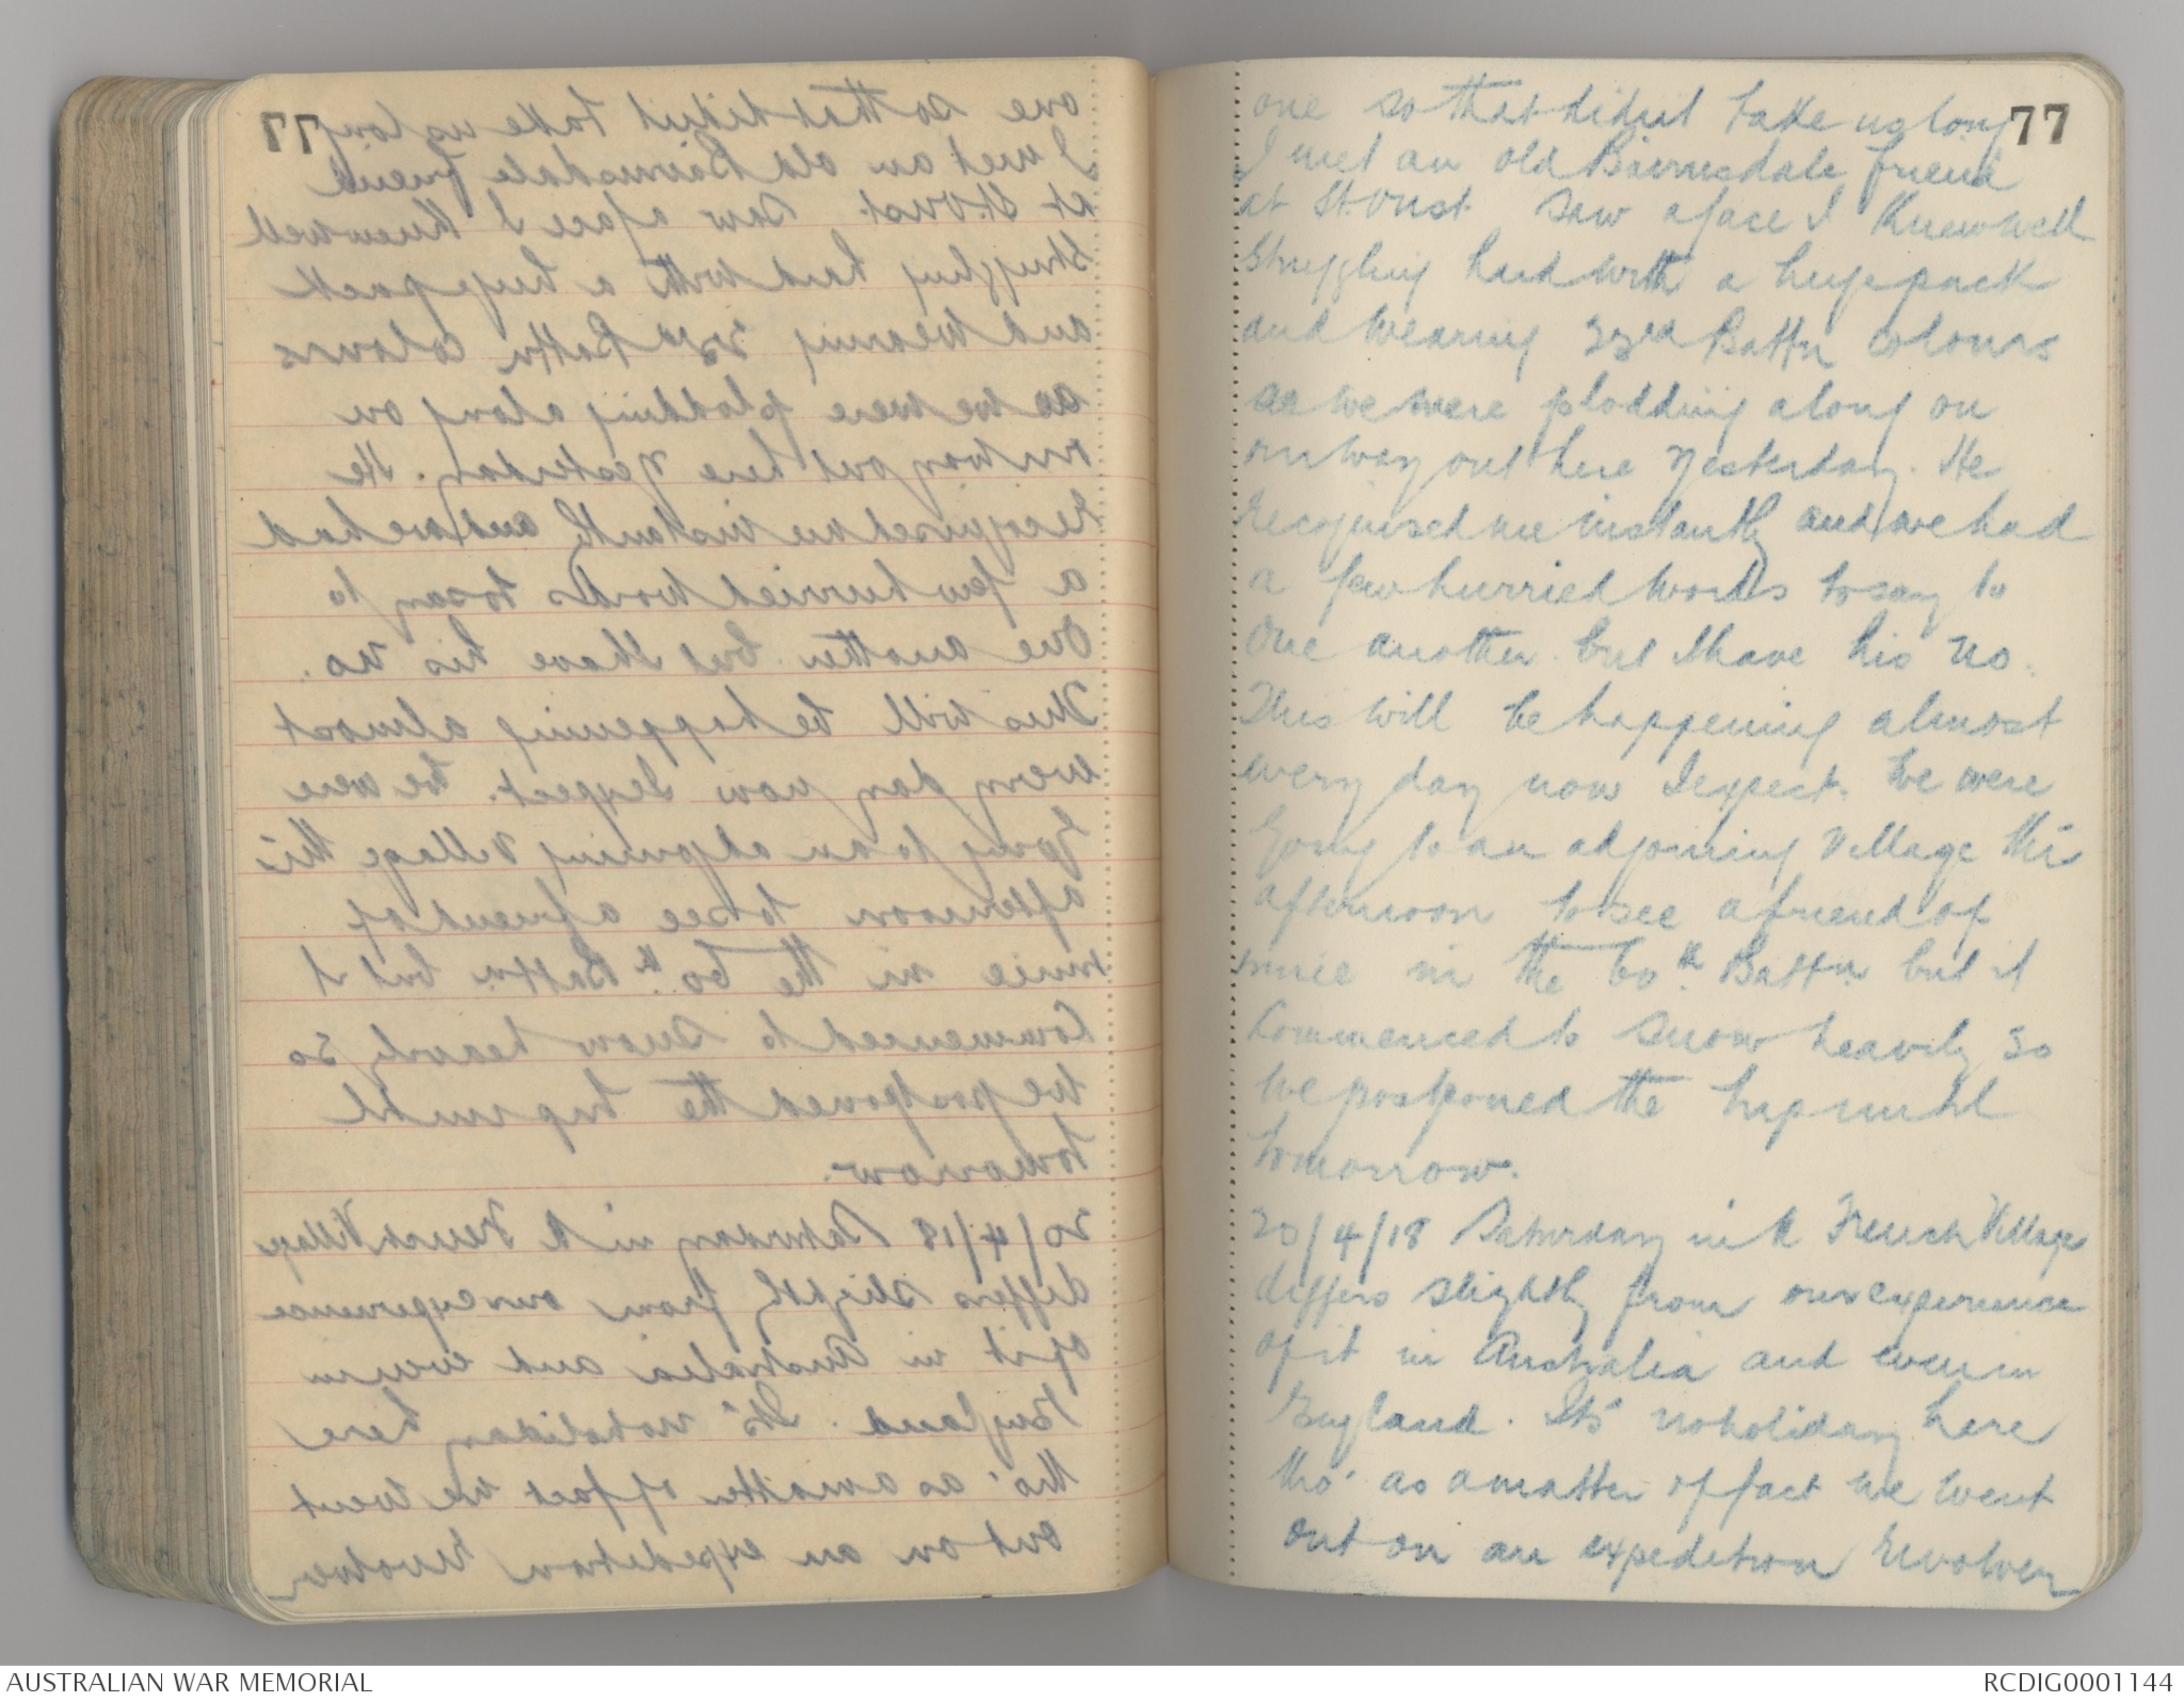 77
one so that didnt take us long
I met an old Bairnsdale friend
at St. Oust. Saw a face I knew well
struggling hard with a huge pack
and wearing 23rd Battn colours
as we were plodding along on
our way out here yesterday. He
recognised me instantly and we had
a few hurried words to say to
one another. but I have his no.
This will be happening almost
every day now I expect. We were
going to an adjoining village this
afternoon to see a friend of
mine in the 60th Battn but it
commenced to snow heavily so
we postponed the trip until
tomorrow.
20/4/18 Saturday in a French Village
differs slightly from our experience
of it in Australia and even in
England. It's no holiday here
tho' as a matter of fact we went
out on an expedition revolver
AUSTRALIAN WAR MEMORIAL
RCDIG0001144